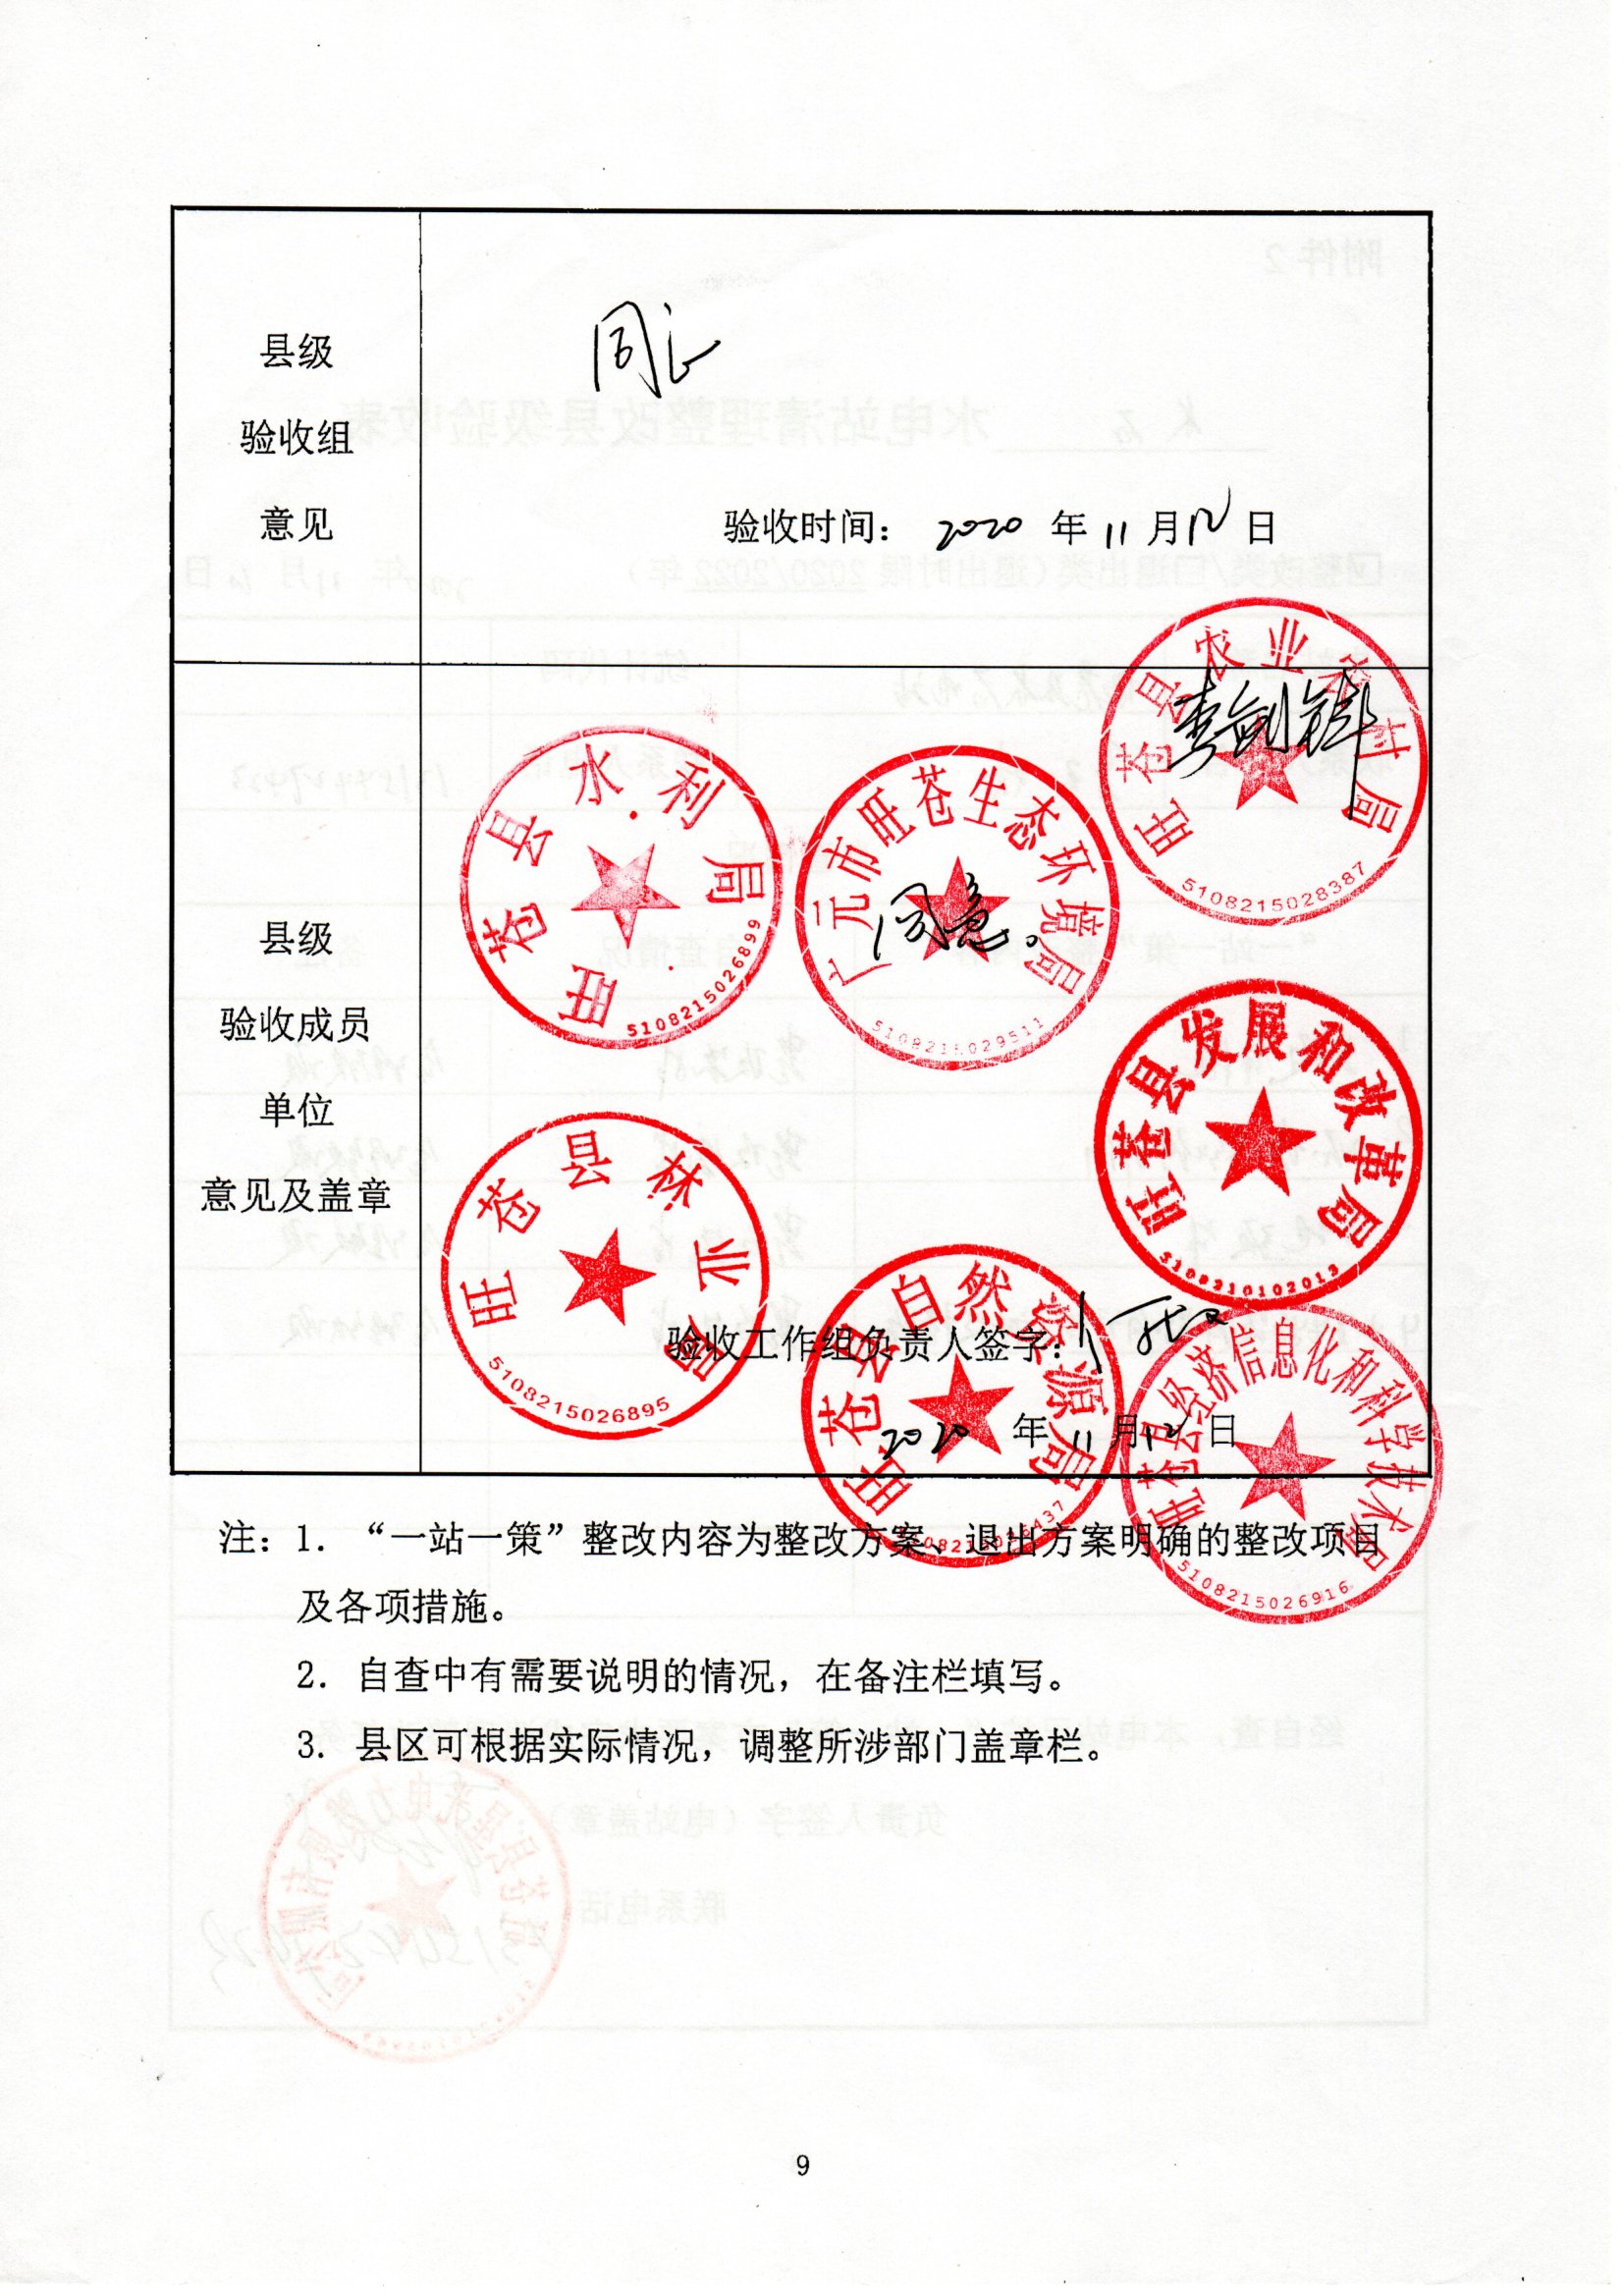 县级
验收组
意见
同意
验收时间： 2020 年 11 月 12 日
县级
验收成员
单位
意见及盖章
旺苍县水利局
5108215026899
广元市旺苍生态环境局
5108215029511
同意。
旺苍县农业农村局
5108215028387
李剑锋
旺苍县发展和改革局
5108210102013
旺苍县林业局
5108215026895
旺苍县自然资源局
旺苍县经济信息化和科学技术局
5108215026916
验收工作组负责人签字：
2020 年 11 月 12 日
注：1. “一站一策”整改内容为整改方案、退出方案明确的整改项目
及各项措施。
2. 自查中有需要说明的情况，在备注栏填写。
3. 县区可根据实际情况，调整所涉部门盖章栏。
9